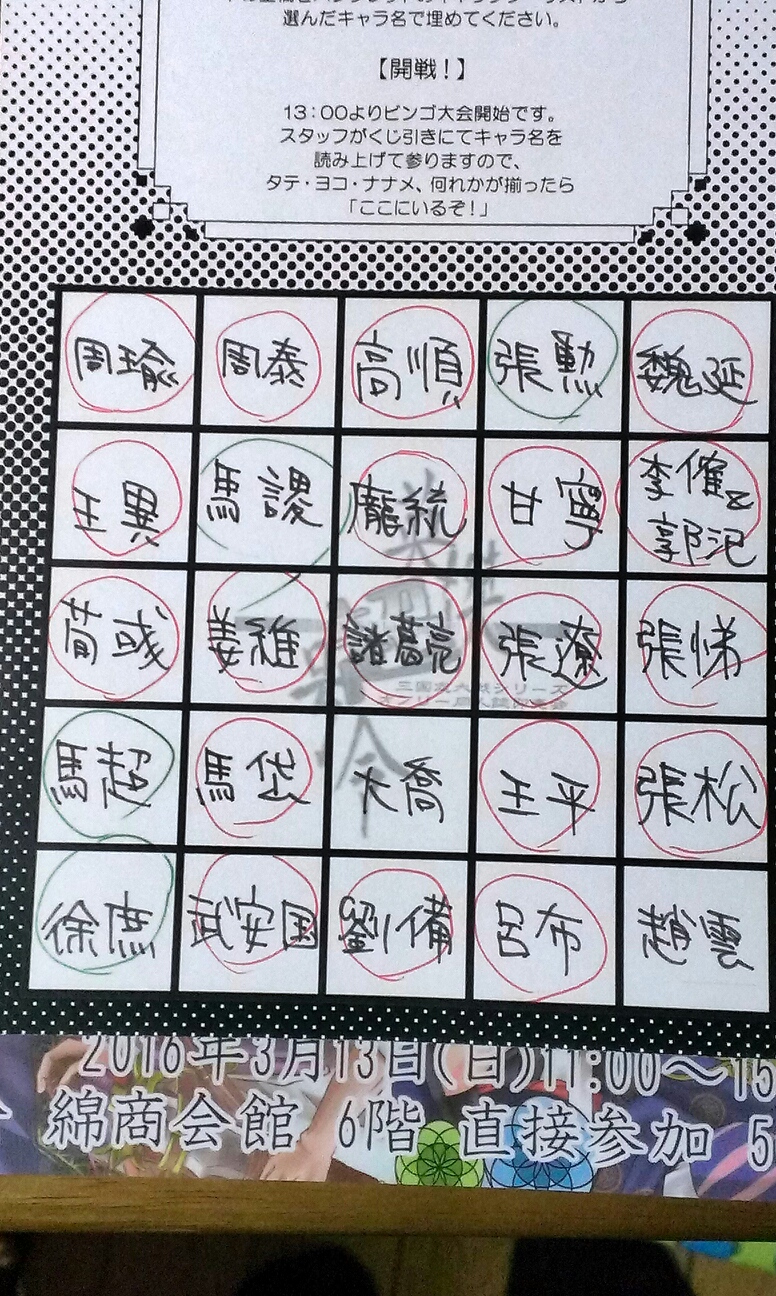 選んだキャラ名で埋めてください。
【開戦！】
13：00よりビンゴ大会開始です。
スタッフがくじ引きにてキャラ名を
読み上げて参りますので、
タテ・ヨコ・ナナメ、何れかが揃ったら
「ここにいるぞ！」
周瑜 周泰 高順 張勲 魏延
王異 馬謖 龐統 甘寧 李傕と郭汜
荀彧 姜維 諸葛亮 張遼 張悌
三国志大戦シリーズ
オンリー同人誌即売会
馬超 馬岱 大喬 王平 張松
徐庶 武安国 劉備 呂布 趙雲
2016年3月13日(日)11:00～15
綿商会館 6階 直接参加 5